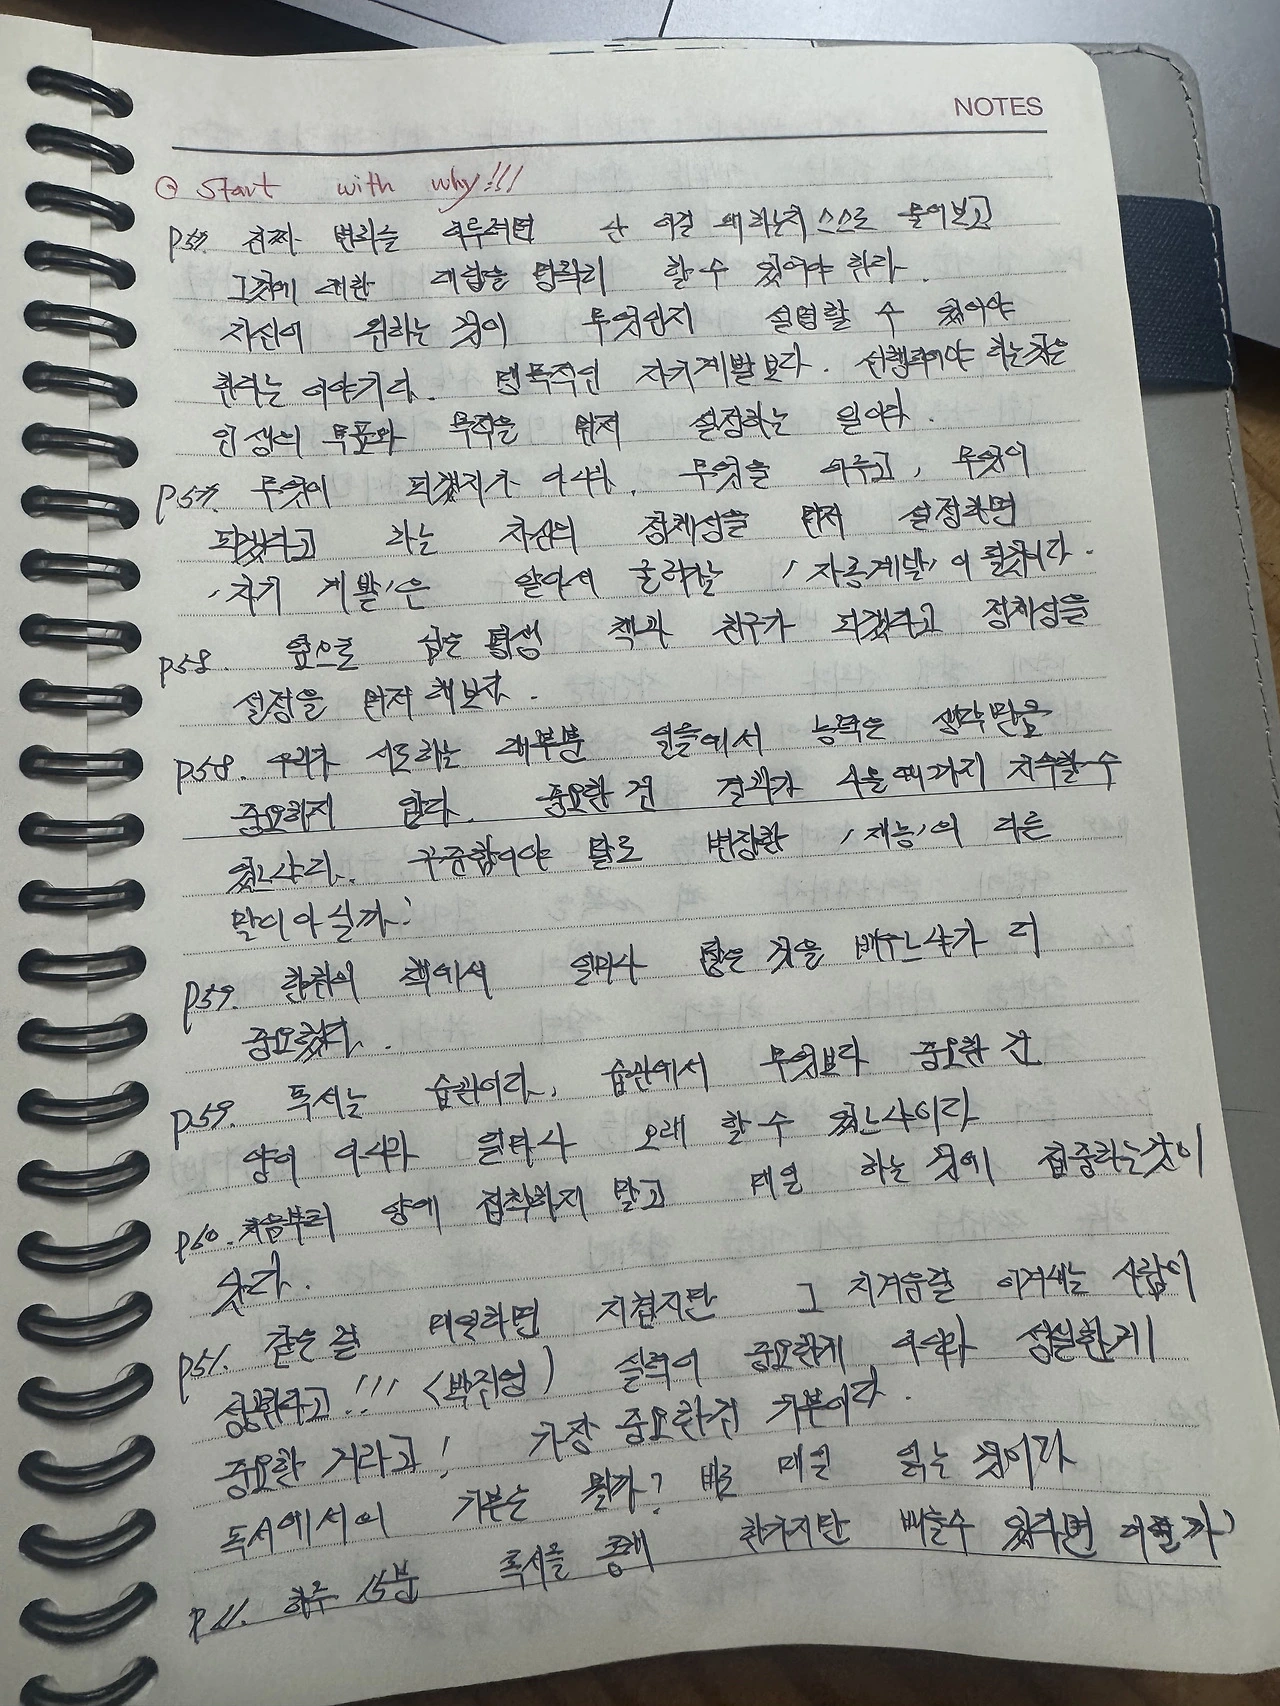 NOTES
⊙ Start with why!!!
p57. 진짜 변화를 이루려면 난 이걸 왜 하는지 스스로 물어보고
그것에 대한 대답을 명확히 할 수 있어야 한다.
자신이 원하는 것이 무엇인지 설명할 수 있어야
한다는 이야기다. 맹목적인 자기계발보다. 선행되어야 하는것은
인생의 목표와 목적을 먼저 설정하는 일이다.
p57. 무엇이 되겠지가 아니라. 무엇을 이루고, 무엇이
되겠다고 하는 자신의 정체성을 먼저 설정하면
'자기 계발'은 알아서 굴러가는 '자동계발'이 될것이다.
p58. 앞으로 남은 평생 책과 친구가 되겠다고 정체성을
설정을 먼저 해보자.
p58. 우리가 시도하는 대부분 일들에서 능력은 생각만큼
중요하지 않다. 중요한 건 결과가 나올때까지 지속할 수
있느냐다. 꾸준함이야 말로 변장한 '재능'의 다른
말이 아닐까?
p59. 한권의 책에서 얼마나 많은 것을 배우느냐가 더
중요했다.
p59. 독서는 습관이다, 습관에서 무엇보다 중요한 건
양이 아니라 얼마나 오래 할 수 있느냐이다
p60. 처음부터 양에 집착하지 말고 매일 하는 것에 집중하는것이
낫다.
p51. 같은걸 매일하면 지겹지만 그 지겨움을 이겨내는 사람이
성공한다고!!! <박진영) 실력이 중요한게 아니라 성실한게
중요한 거라고! 가장 중요한건 기본이다.
독서에서의 기본은 뭘까? 바로 매일 읽는 것이다
p61. 하루 15분 독서를 통해 한가지만 배울수 있다면 어떨까?